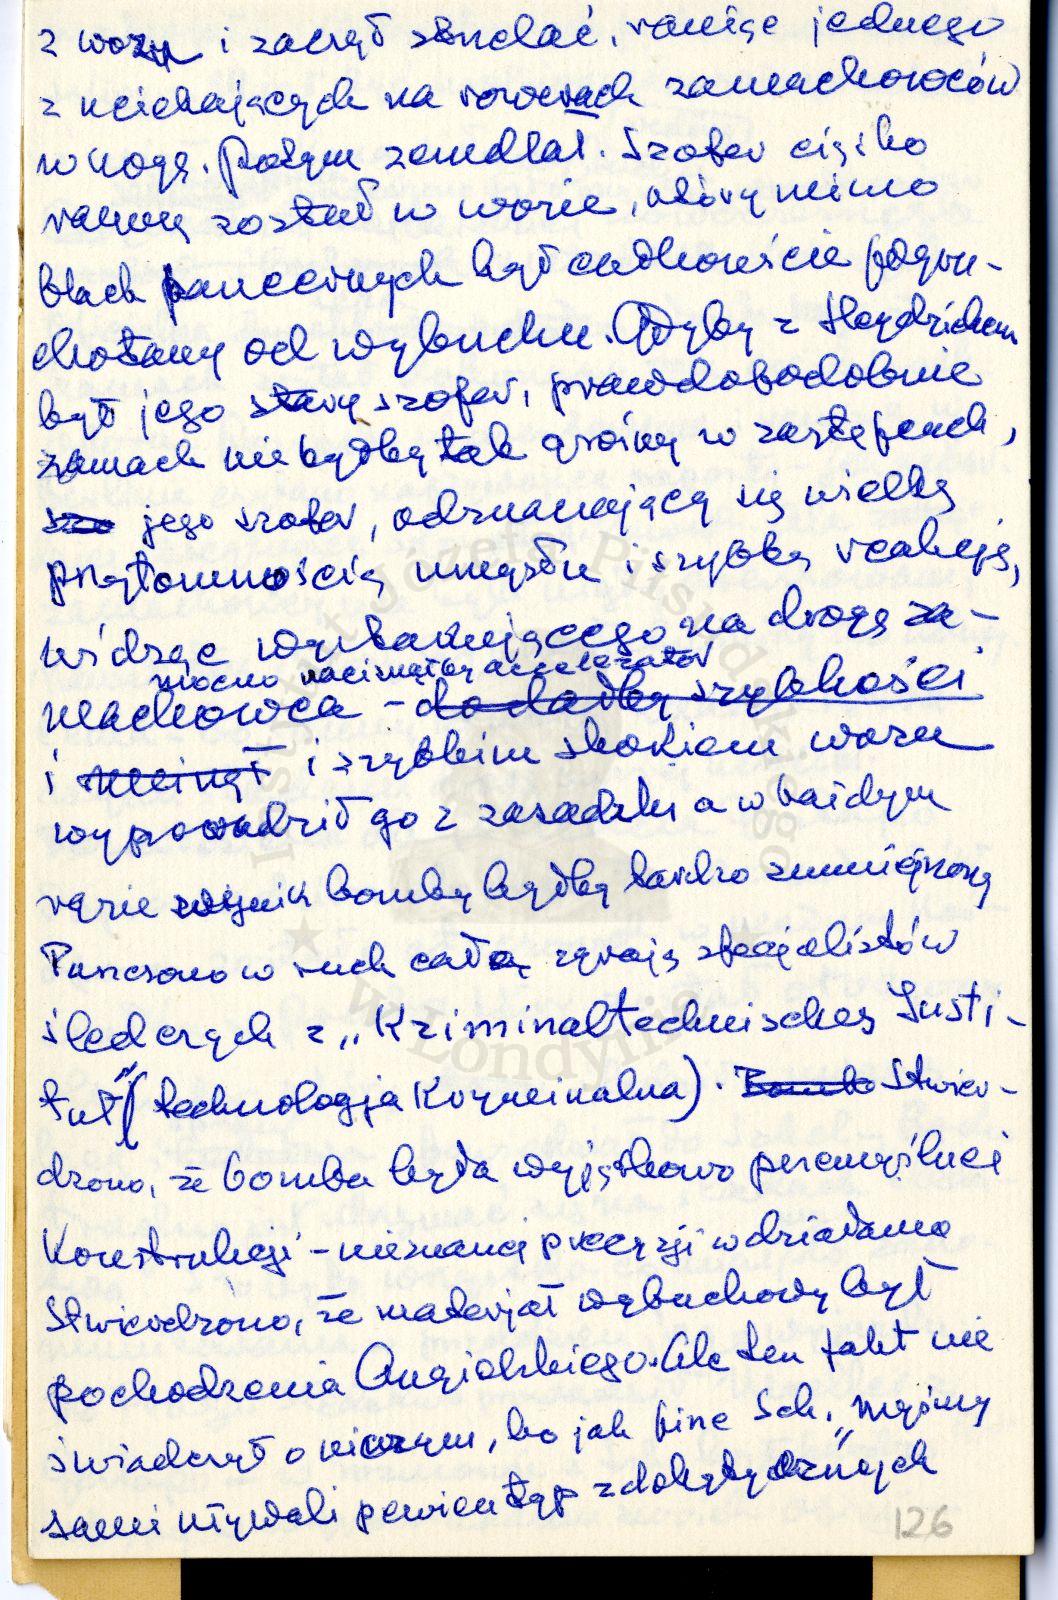 z wozu i zaczął strzelać, raniąc jednego
z uciekających na rowerach zamachowców
w nogę. Potym zemdlał. Szofer ciężko
ranny został w wozie, który mimo
blach pancernych był całkowicie pogru-
chotany od wybuchu. Gdyby z Heydrichem
był jego stary szofer, prawdobodobnie
zamach nie byłby tak groźny w zastępcach,
szo jego szofer, odznaczający się wielką
przytomnością umysłu i szybką reakcją,
widząc wyskakującego na drogę za-
mocno nacisnąłby accelerator
machowca - dodałby szybkości
i i szybkim skokiem wozu
wyprowadził go z zasadzki a w każdym
razie wynik bomby byłby bardzo zmniejszony
Puszczono w ruch całą zgraję specjalistów
śledczych z „Kriminaltechnisches Insti-
tut" (technologja Kryminalna). Bomba Stwier-
dzono, że bomba była wyjątkowo przemyślnej
Konstrukcji - nieznanej precyzji w działaniu
Stwierdzono, że materjał wybuchowy był
pochodzenia Angielskiego. Ale ten fakt nie
świadczył o niczym, bo jak pisze Sch. „myśmy
sami używali pewien typ zdobytycznych"
126
Instytut Józefa Piłsudskiego
w Londynie